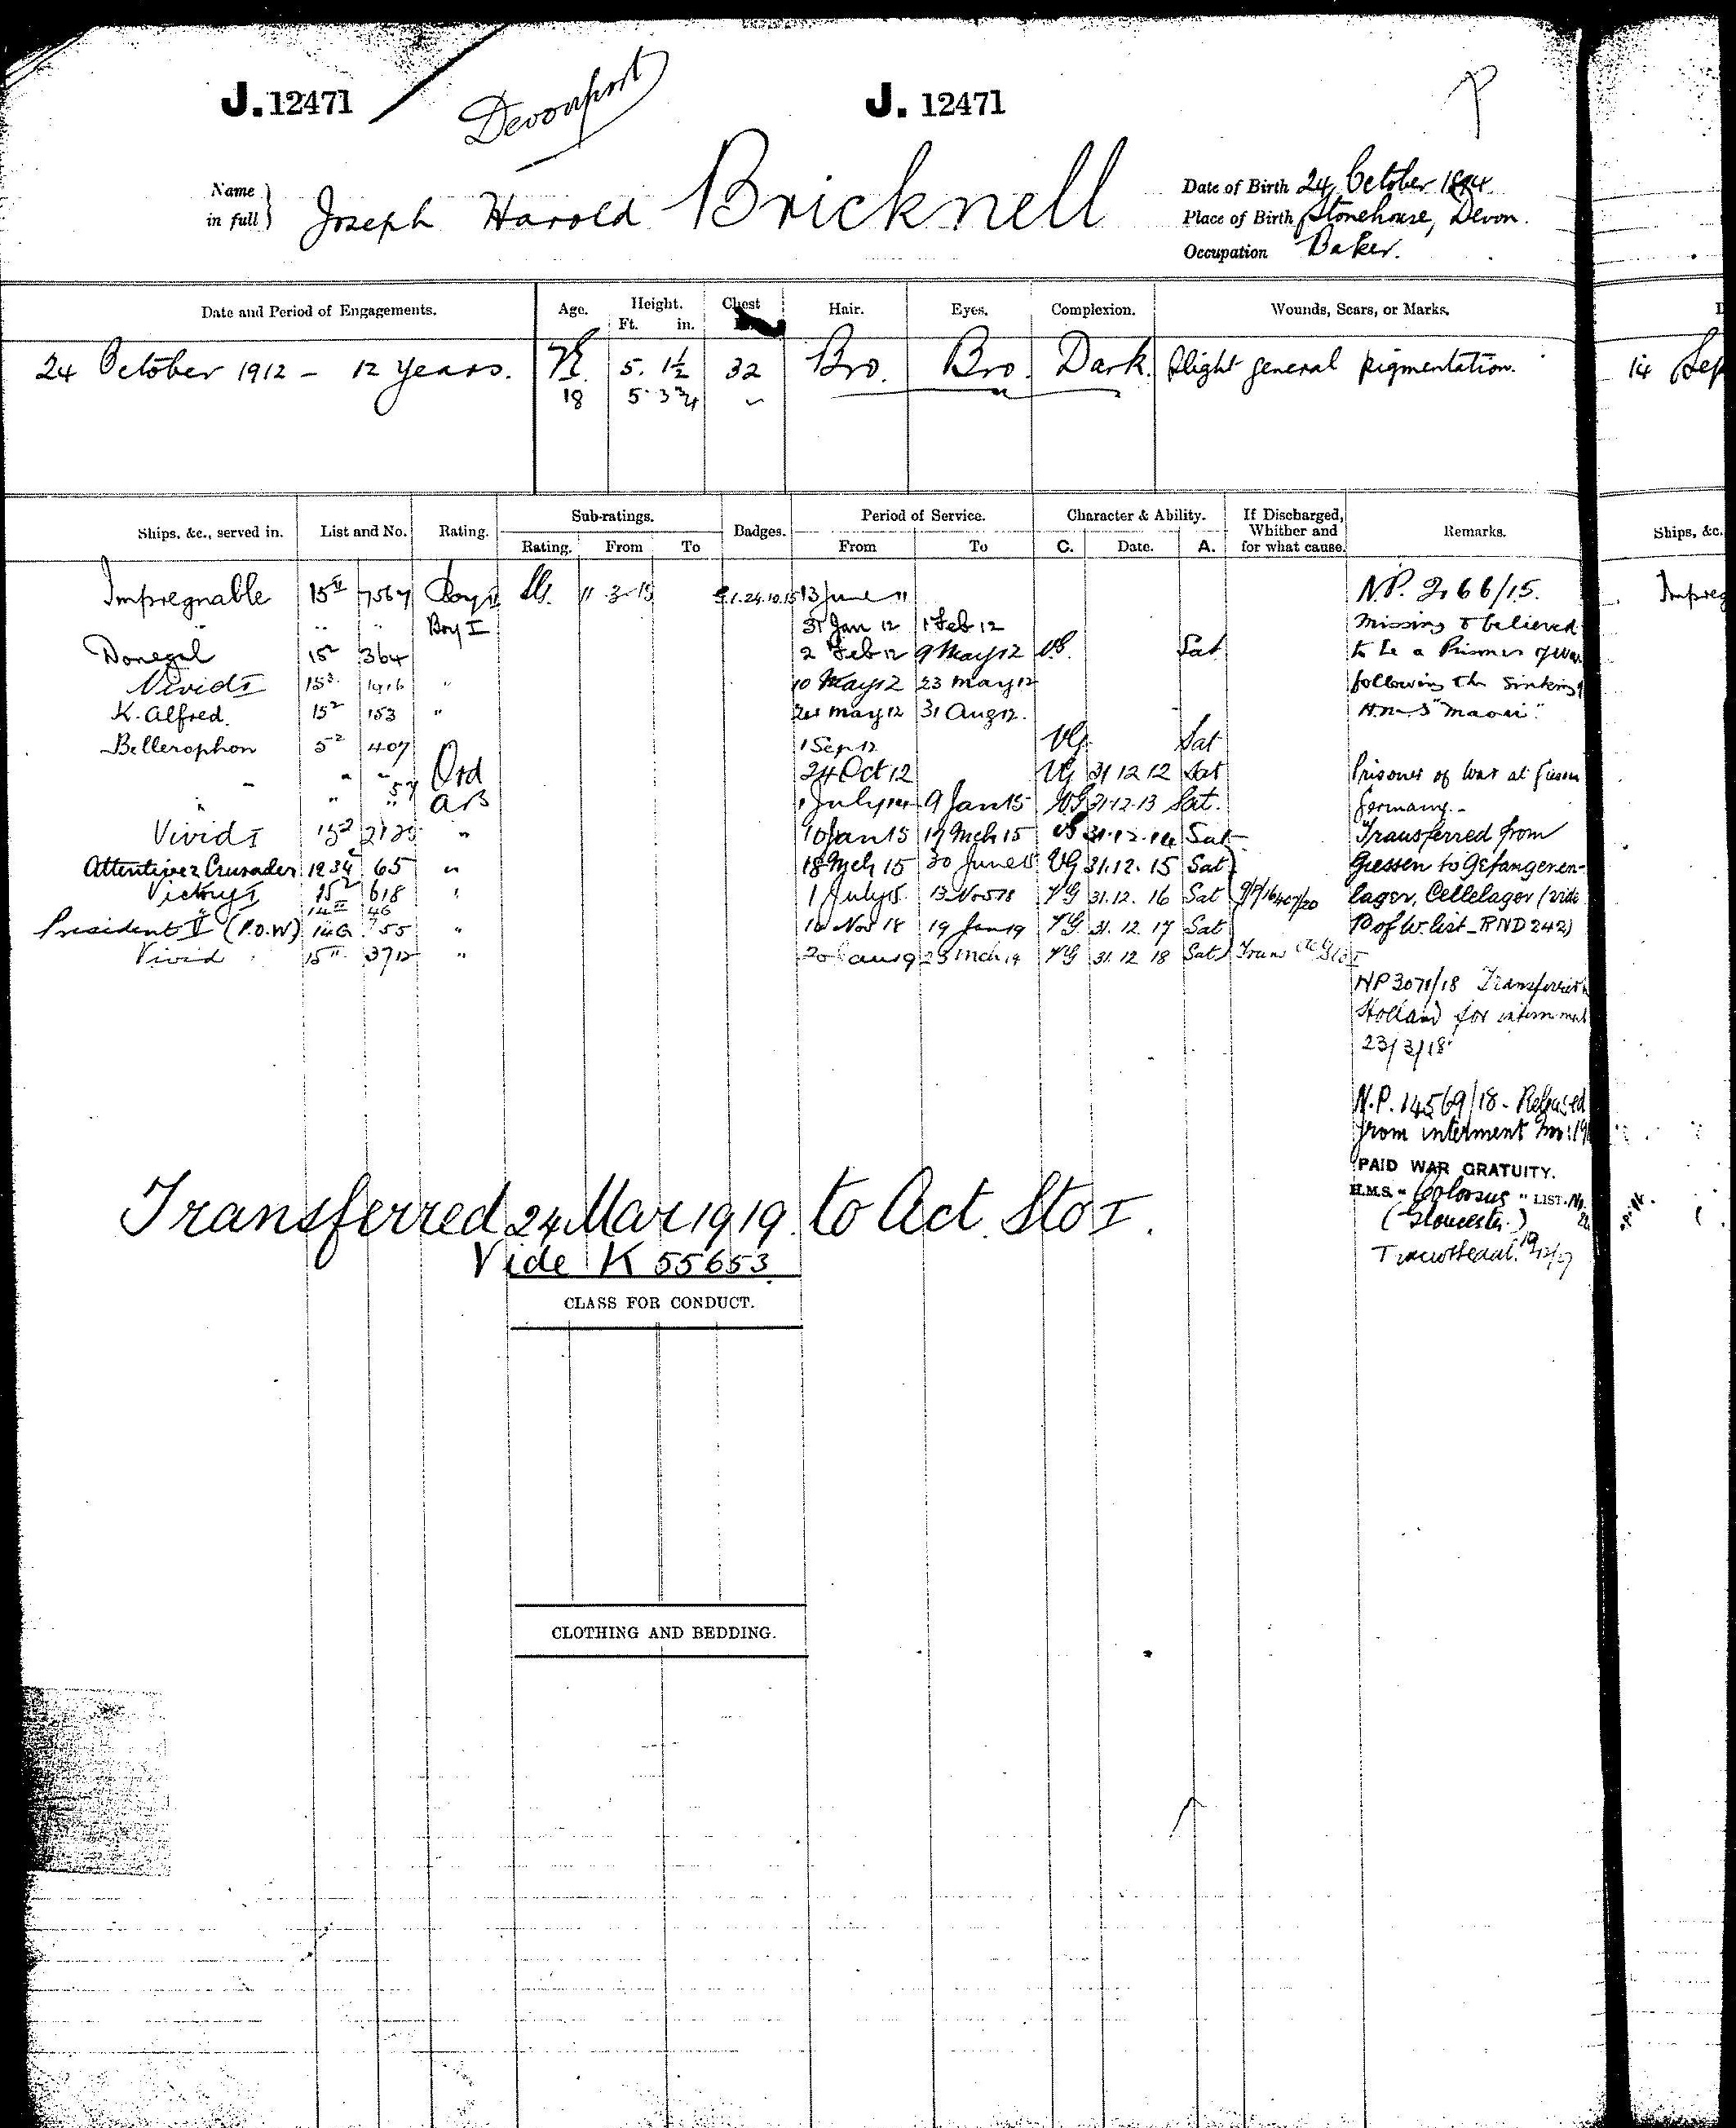 J. 12471
Devonport
J. 12471
Name in full } Joseph Harold Bricknell
Date of Birth 24 October 1894
Place of Birth Stonehouse, Devon.
Occupation Baker.
Date and Period of Engagements. Age. Height. Ft. in. Chest Hair. Eyes. Complexion. Wounds, Scars, or Marks.
24 October 1912 - 12 years. 5. 1½ 32 Bro. Bro. Dark. Slight general pigmentation.
18 5 3¾
14 Sep
Ships, &c., served in. List and No. Rating. Sub-ratings. Rating. From To Badges. Period of Service. From To Character & Ability. C. Date. A. If Discharged, Whither and for what cause. Remarks.
Ships, &c.
Impregnable 15 II 7567 Boy II 11 3 15 G.1.24.10.15 13 June 11 N.P. 2166/15.
Impreg
" " " Boy I 31 Jan 12 1 Feb 12 Missing & believed
Donegal 15² 364 2 Feb 12 9 May 12 VG. Sat to be a Prisoner of War
Vivid I 15³ 1916 " 10 May 12 23 May 12 following the sinking of
K. Alfred. 15² 153 " 24 May 12 31 Aug 12. H.M.S "Maori".
Bellerophon 5² 407 1 Sep 12 VG Sat
" " " Ord 24 Oct 12 VG 31 12 12 Sat Prisoner of War at Giessen
" " 57 AB 1 July 14 9 Jan 15 VG 31.12.13 Sat. Germany.-
Vivid I 15² " 10 Jan 15 17 Mch 15 VG 31.12.14 Sat Transferred from
Attentive 2 Crusader 65 " 18 Mch 15 30 June 15 VG 31.12.15 Sat Giessen to Gefangenen-
Victory I 15² 618 " 1 July 15. 13 Nov 18 VG 31.12.16 Sat lager, Cellelager (vide
" 14 II 46
President V (P.O.W) 14a 755 " 14 Nov 18 19 Jan 19 VG 31.12 17 Sat P of W. list - RND 242)
Vivid 15 II 3712 " 20 Jan 19 23 Mch 19 VG 31.12 18 Sat Trans
NP 3071/18 Transferred to
Holland for internment
23/3/18
N.P. 14569/18 - Released
from interment Nov: 19
PAID WAR GRATUITY.
H.M.S. "Colossus" LIST. No.
(Gloucester)
Transferred 24 Mar 1919. to Act. Sto I.
Vide K 55653.
CLASS FOR CONDUCT.
CLOTHING AND BEDDING.